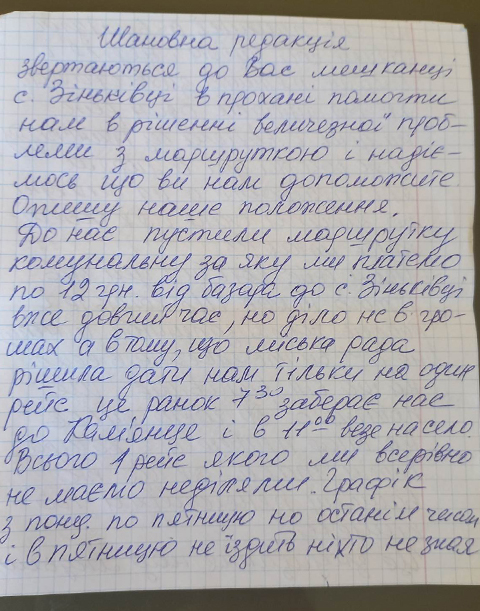 Шановна редакція
звертаються до Вас мешканці
с. Зіньківці в прохані помогти
нам в рішенні величезної проб-
леми з маршруткою і надіє-
мось що ви нам допоможите.
Опишу наше положення.
До нас пустили маршрутку
комунальну за яку ми платемо
по 12 грн. від базара до с. Зіньківці
вже довгий час, но діло не в гро-
шах а в тому, що міська рада
рішила дати нам тільки на один
рейс це ранок 7 30 заберає нас
до Кам'янце і в 11 00 везе насело.
Всього 1 рейс якого ми всерівно
не маємо неділями. Графік
з понд. по пятницю но останім часом
і в пятницю не їздить ніхто не зная